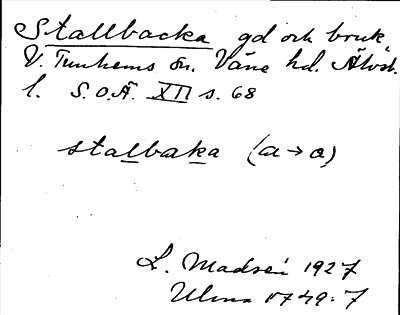 Stallbacka gd och bruk
V. Tunhems sn. Väne hd. Älvsb.
l. S.O.Ä. XII s. 68
stalbaka (a→a)
L. Madsén 1927
Ulma 1749:7